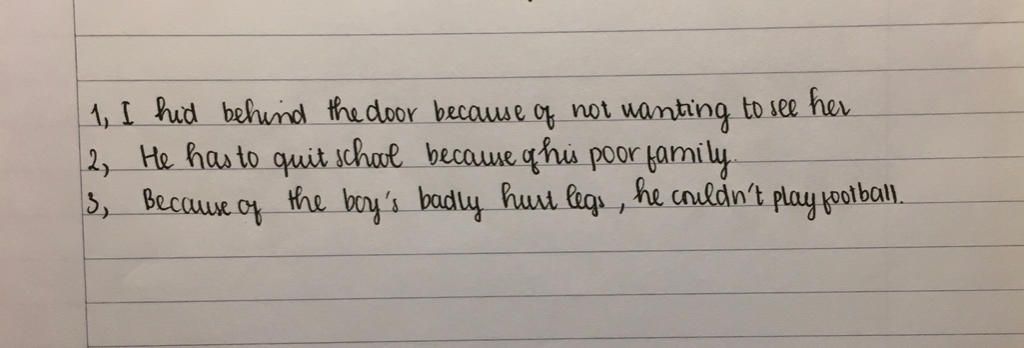 1, I hid behind the door because of not wanting to see her
2, He has to quit school because of his poor family.
3, Because of the boy's badly hurt legs, he couldn't play football.